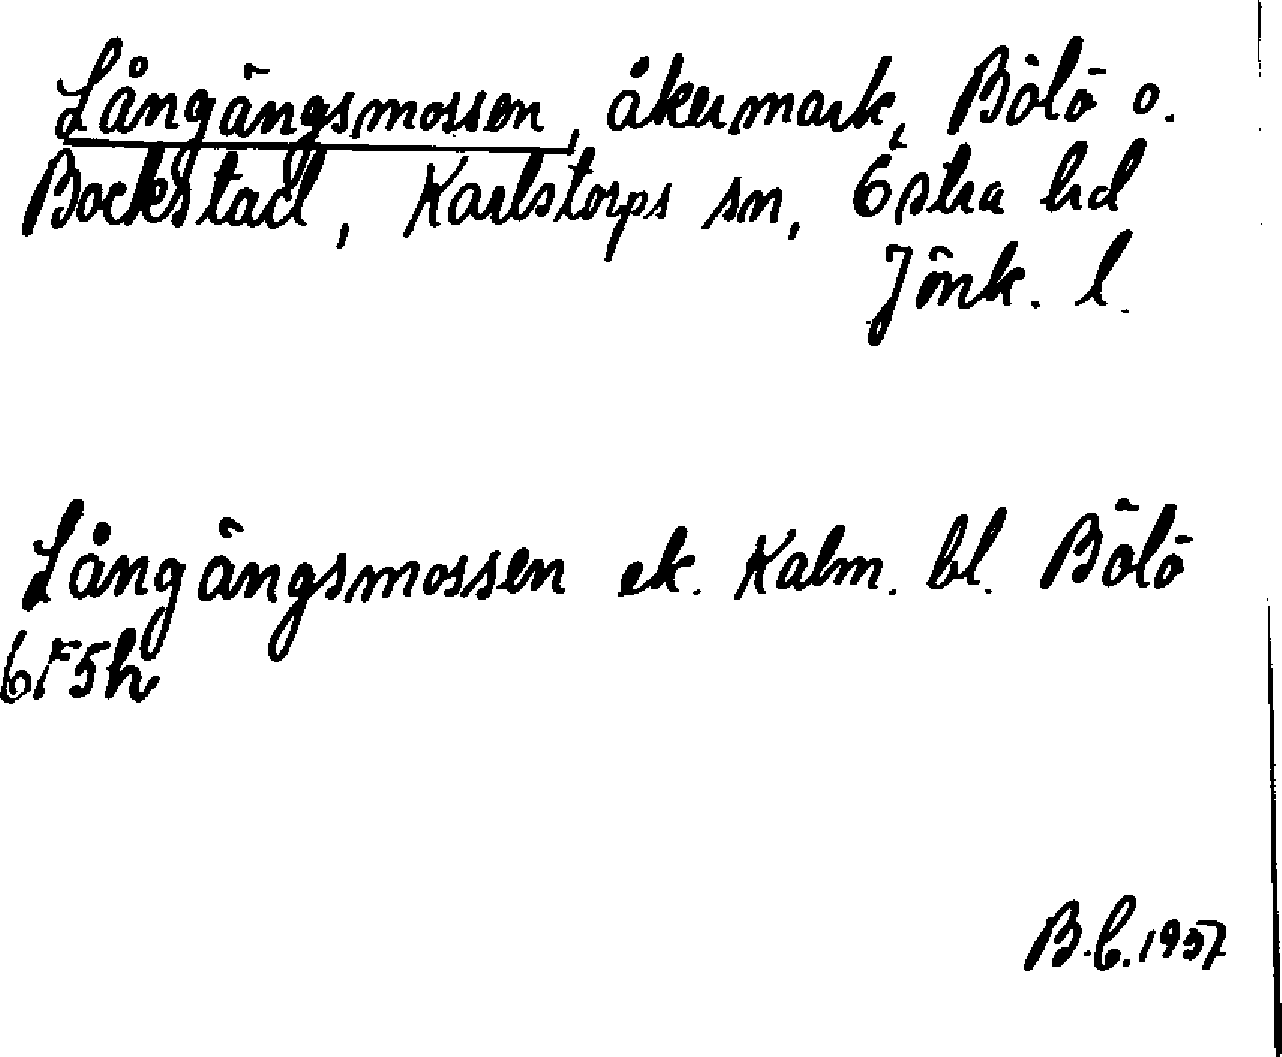 Långängsmossen, åkermark, Bölö o.
Bockstad, Karlstorps sn, Östra hd
Jönk. l.
Långängsmossen ek. Kalm. bl. Bölö
6F5h
B.C. 1957